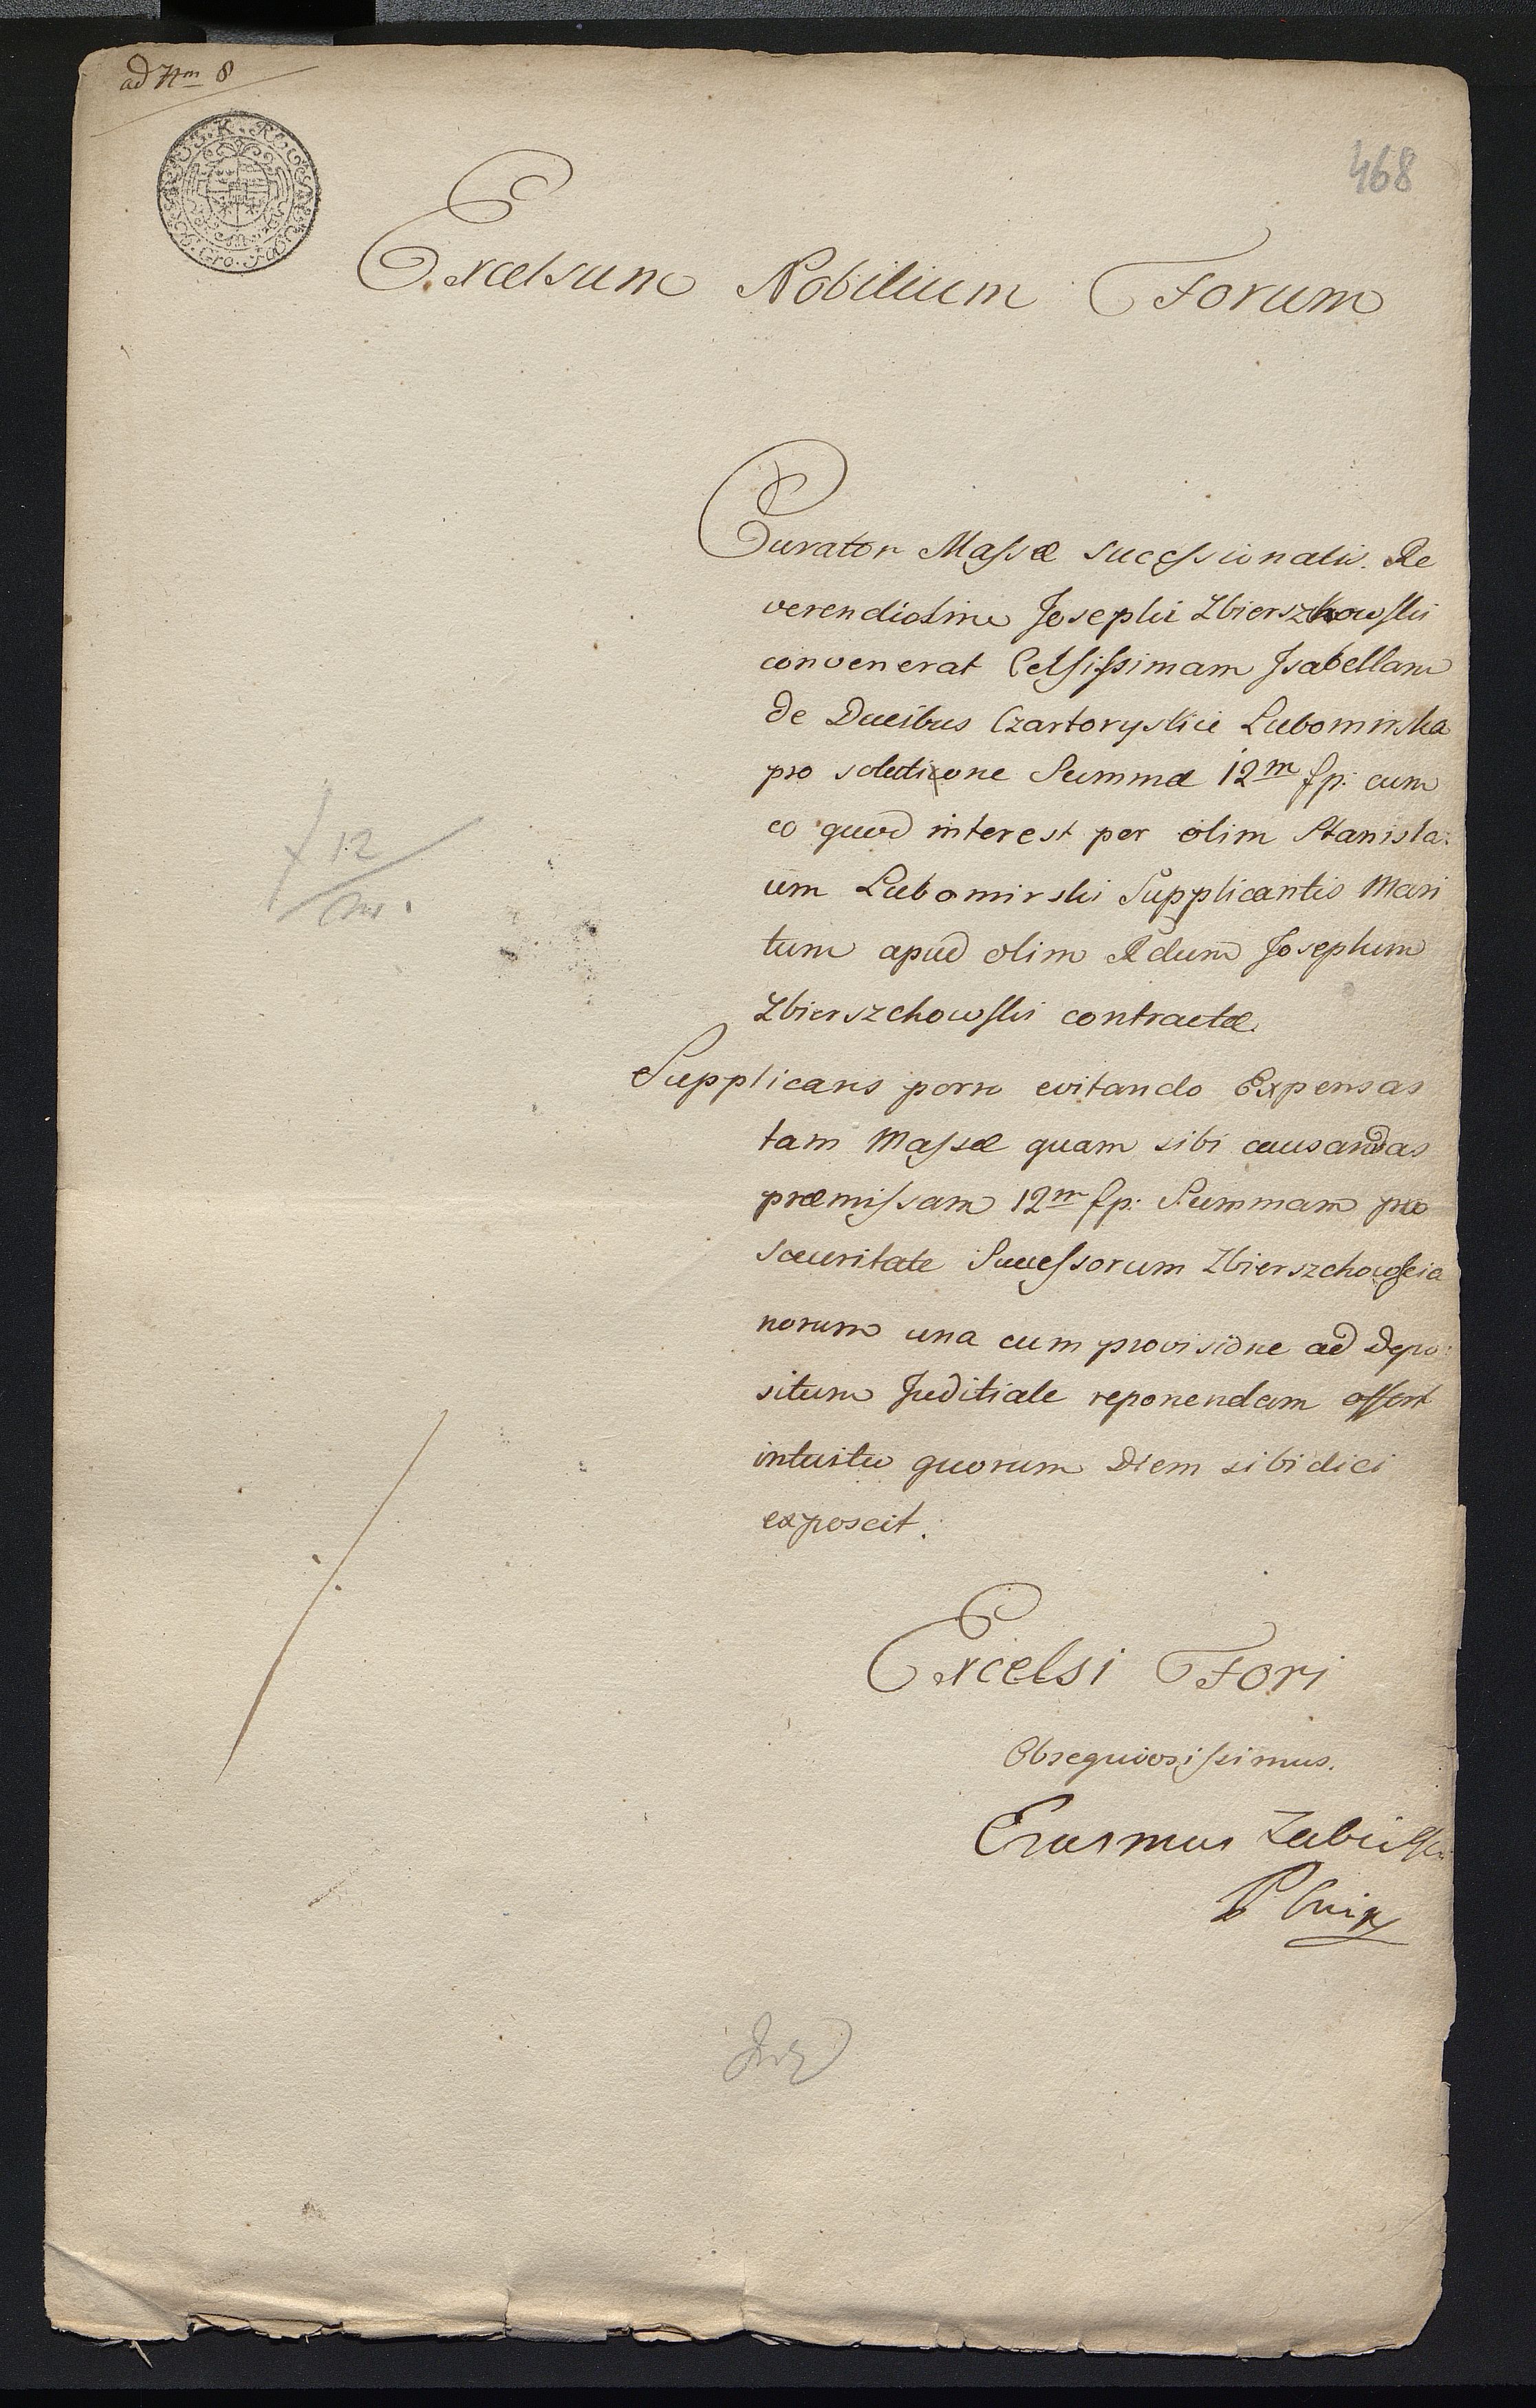 ad Nrm 8
468
Excelsum Nobilium Forum
Curator Massæ sucessionalis Re
verendissime Josephi Zbierszkowski
convenerat Celsissimam Isabellam
de Ducibus Czartoryskie Lubomirska
pro solutione Summæ 12m fp: cum
eo quod interest per olim Stanisla:
um Lubomirski Supplicantis Mari
tum apud olim Rdum Josephum
Zbierszchowski contractæ.
Supplicans porro evitando Expensas
tam Massæ quam sibi causandas
præmissam 12m fp: Summam pro
securitate Successorum Zbierszchowscia
norum una cum provisione ad Depo:
situm Juditiale reponendam offert
intuitu quorum Diem sibi dici
exposcit.
12
m
Excelsi Fori
Obsequiosissimus.
Erasmus